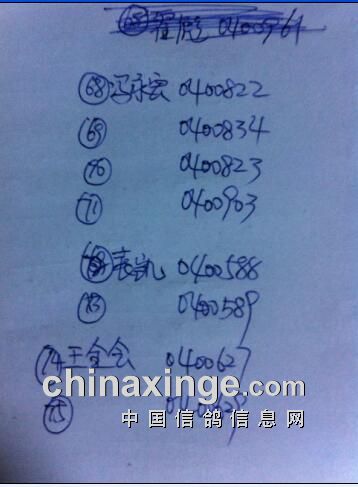 0400964
68 冯永宏 0400822
69 0400834
70 0400823
71 0400903
袁凯 0400588
73 0400589
74 王金会 0400627
chinaxinge.com
75
中国信鸽信息网